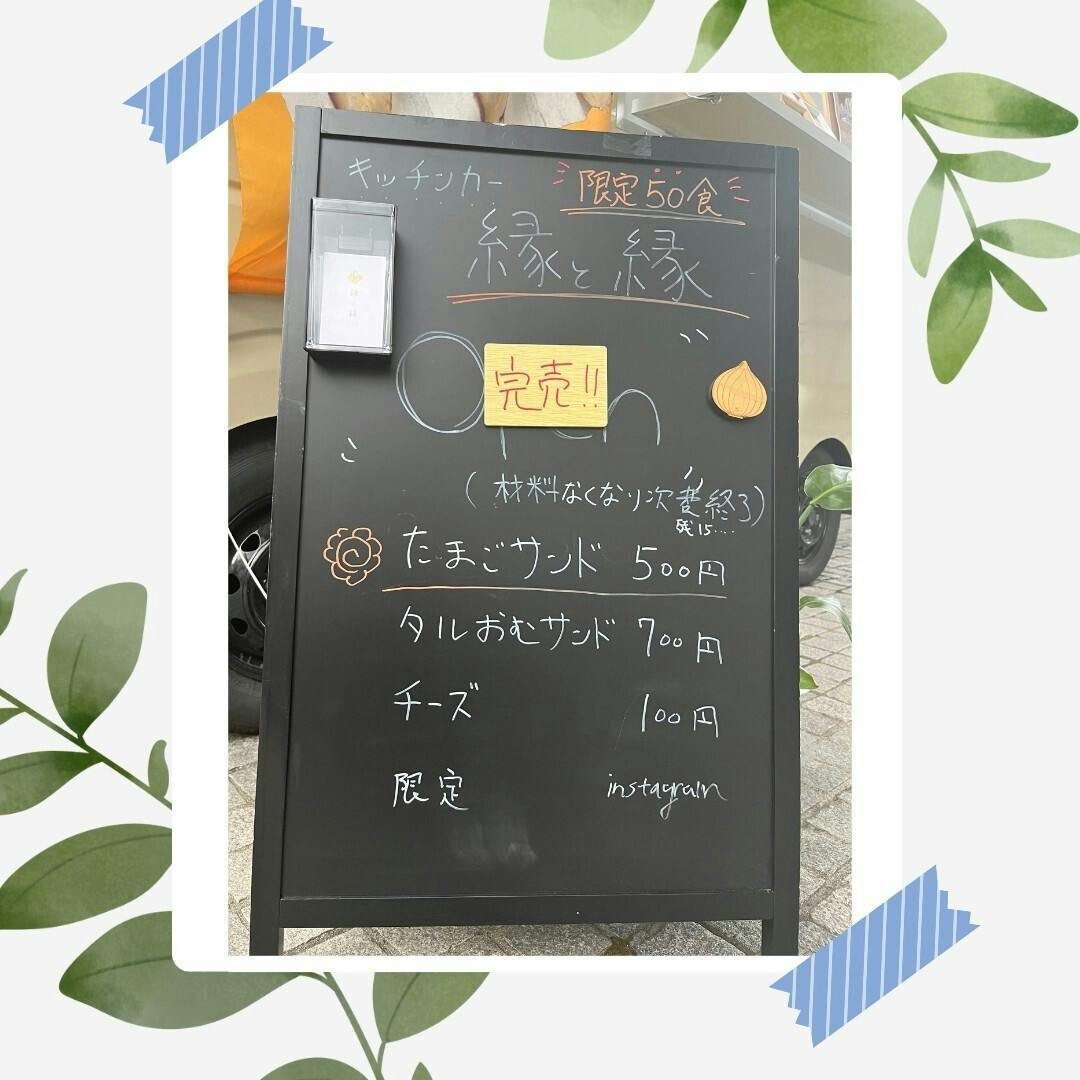 キッチンカー
限定50食
縁と縁
Open
完売!!
(材料なくなり次第終了)
残15....
たまごサンド 500円
タルおむサンド 700円
チーズ 100円
限定 instagram